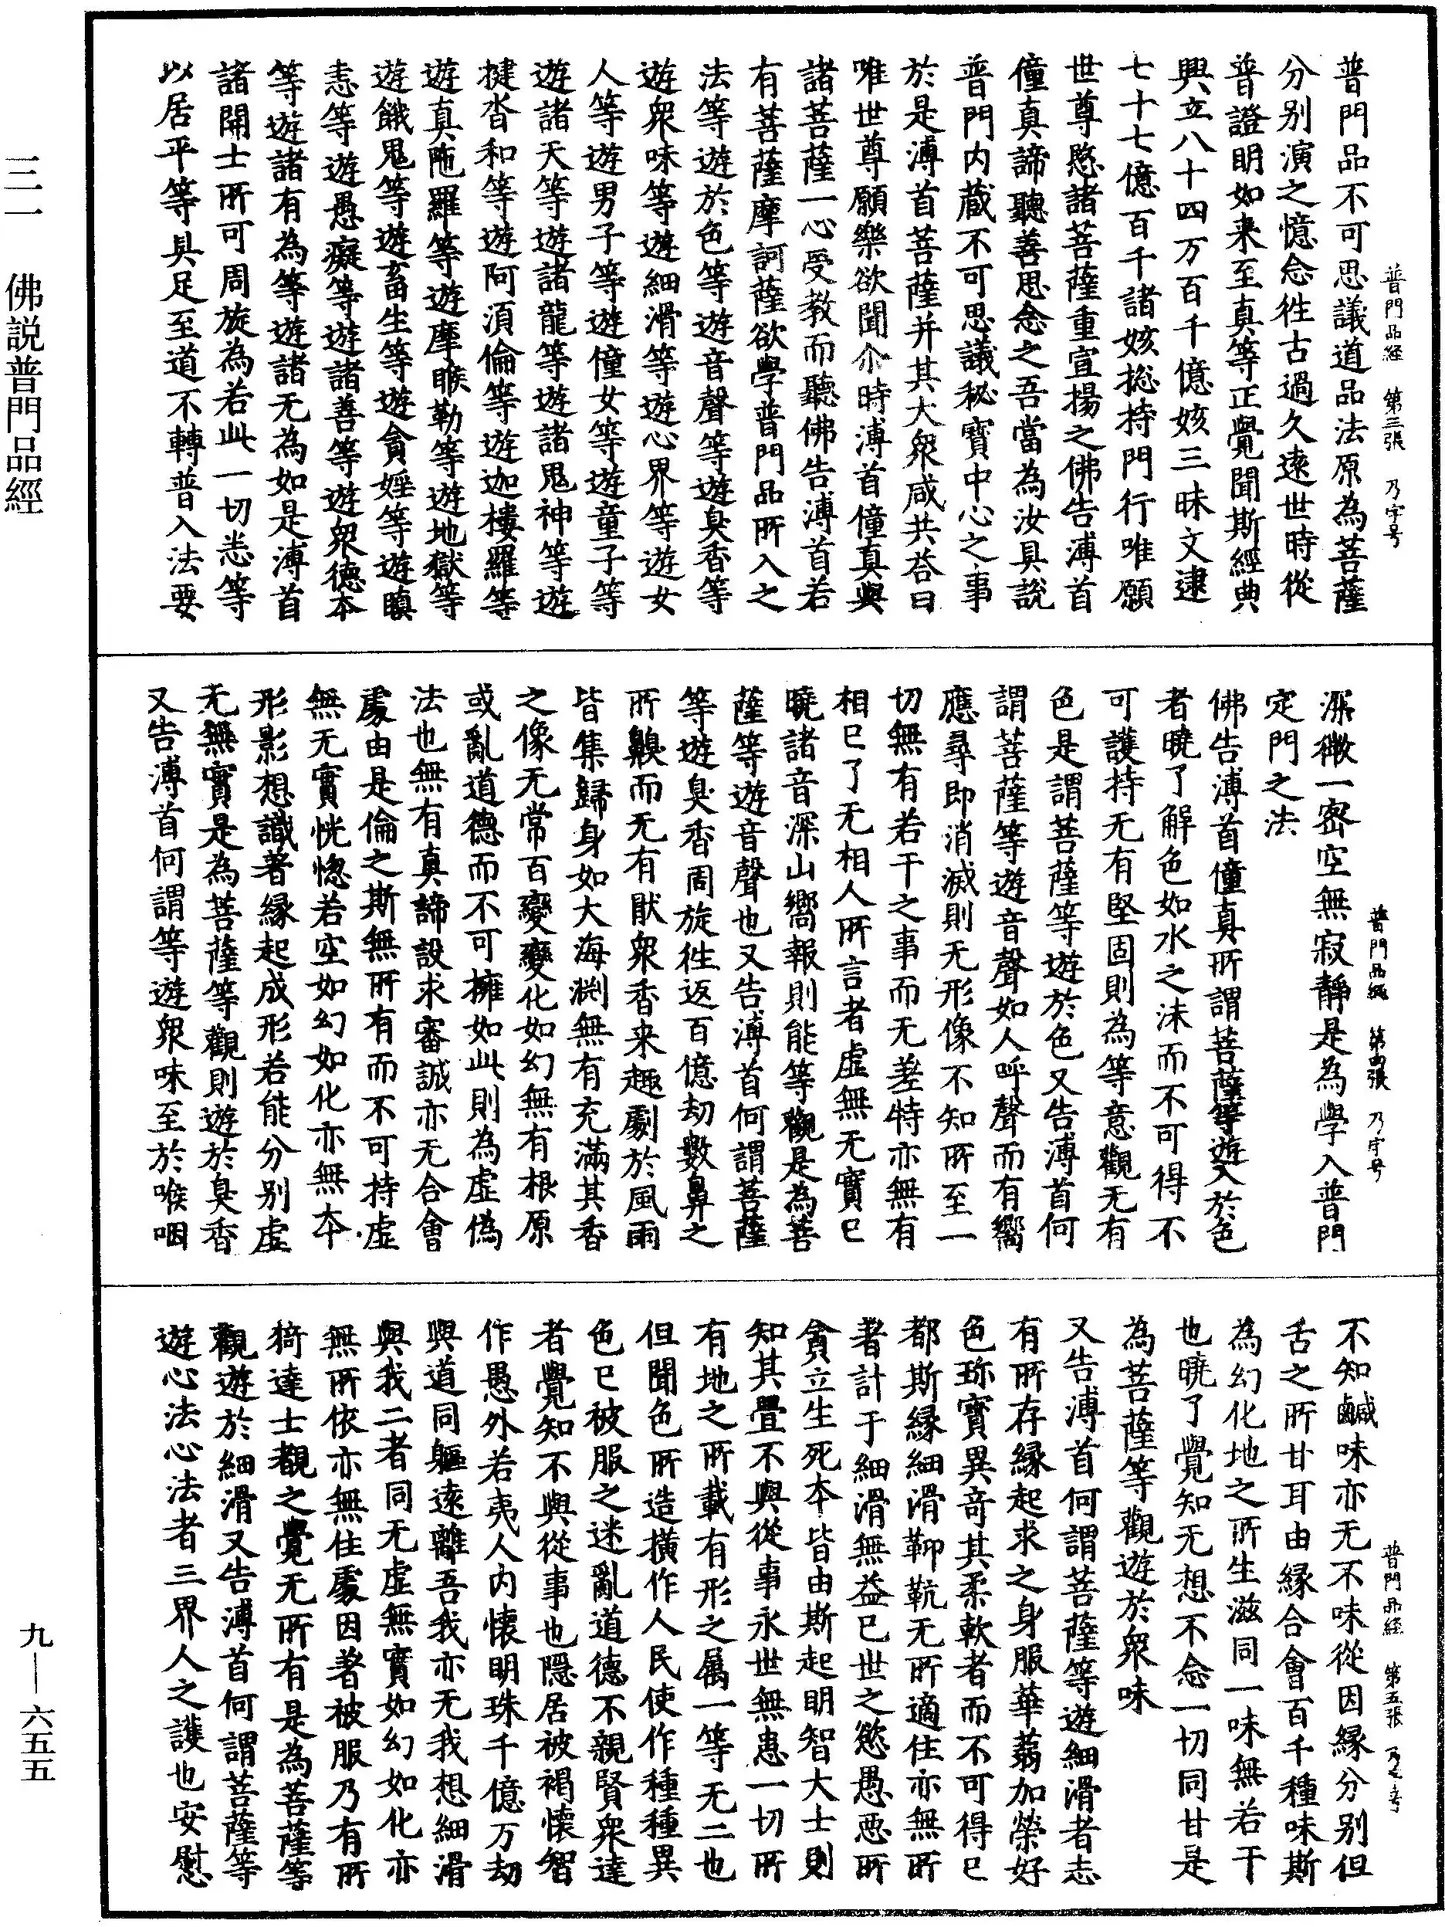 三一 佛説普門品經
九—六五五
普門品經 第三張 乃字号
普門品不可思議道品法原為菩薩
分别演之憶念徃古過久遠世時從
普證明如来至真等正覺聞斯經典
興立八十四万百千億姟三昧文逮
七十七億百千諸姟捴持門行唯願
世尊愍諸菩薩重宣揚之佛告溥首
僮真諦聽善思念之吾當為汝具説
普門内藏不可思議秘寶中心之事
於是溥首菩薩并其大衆咸共荅曰
唯世尊願樂欲聞尒時溥首僮真與
諸菩薩一心受教而聽佛告溥首若
有菩薩摩訶薩欲學普門品所入之
法等遊於色等遊音聲等遊臭香等
遊衆味等遊細滑等遊心界等遊女
人等遊男子等遊僮女等遊童子等
遊諸天等遊諸龍等遊諸鬼神等遊
揵沓和等遊阿湏倫等遊迦樓羅等
遊真陁羅等遊摩睺勒等遊地獄等
遊餓鬼等遊畜生等遊貪婬等遊瞋
恚等遊愚癡等遊諸善等遊衆德本
等遊諸有為等遊諸无為如是溥首
諸開士所可周旋為若此一切悉等
以居平等具足至道不轉普入法要
普門品經 第四張 乃字号
深微一密空無寂靜是為學入普門
定門之法
佛告溥首僮真所謂菩薩等遊入於色
者曉了解色如水之沫而不可得不
可護持无有堅固則為等意觀无有
色是謂菩薩等遊於色又告溥首何
謂菩薩等遊音聲如人呼聲而有嚮
應尋即消滅則无形像不知所至一
切無有若干之事而无差特亦無有
相已了无相人所言者虚無无實已
曉諸音深山嚮報則能等觀是為菩
薩等遊音聲也又告溥首何謂菩薩
等遊臭香周旋徃返百億劫數鼻之
所齅而无有猒衆香来趣劇於風雨
皆集歸身如大海渕無有充滿其香
之像无常百變變化如幻無有根原
或亂道德而不可擁如此則為虚偽
法也無有真諦設求審誠亦无合會
處由是倫之斯無所有而不可持虚
無无實恍惚若空如幻如化亦無本
形影想識著縁起成形若能分别虚
无無實是為菩薩等觀則遊於臭香
又告溥首何謂等遊衆味至於喉咽
普門品經 第五張 乃字号
不知鹹味亦无不味從因縁分别但
舌之所甘耳由縁合會百千種味斯
為幻化地之所生滋同一味無若干
也曉了覺知无想不念一切同甘是
為菩薩等觀遊於衆味
又告溥首何謂菩薩等遊細滑者志
有所存縁起求之身服華蒻加榮好
色珎寶異竒其柔軟者而不可得已
都斯縁細滑鞆䩕无所適住亦無所
者計于細滑無益已世之慾愚惡所
貪立生死本皆由斯起明智大士則
知其疊不與從事永世無患一切所
有地之所載有形之属一等无二也
但聞色所造撗作人民使作種種異
色已被服之迷亂道德不親賢衆達
者覺知不與從事也隱居被褐懷智
作愚外若夷人内懷明珠千億万劫
與道同軀遠離吾我亦无我想細滑
與我二者同无虚無實如幻如化亦
無所依亦無住處因著被服乃有所
猗達士覩之覺无所有是為菩薩等
觀遊於細滑又告溥首何謂菩薩等
遊心法心法者三界人之護也安慰